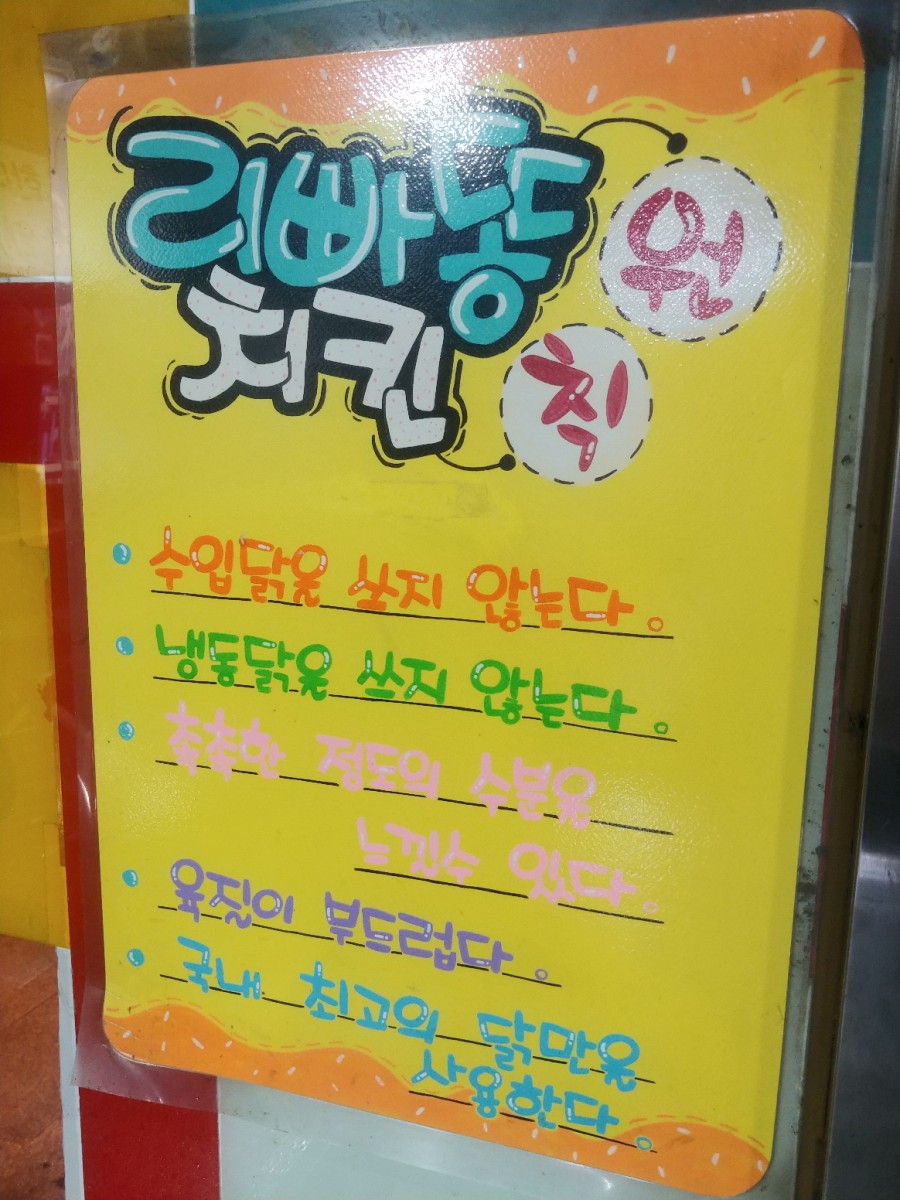 리빠똥
치킨
원
칙
수입닭을 쓰지 않는다.
냉동닭을 쓰지 않는다.
촉촉한 정도의 수분을
느낄수 있다.
육질이 부드럽다.
국내 최고의 닭만을
사용한다.